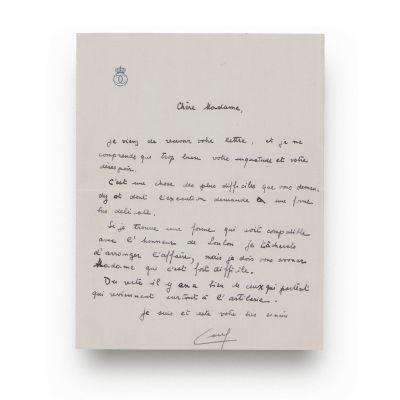 Chère Madame,
je viens de recevoir votre lettre, et je ne
comprends que trop bien votre inquietude et votre
désespoir.
C'est une chose des plus difficiles que vous deman-
dez et dont l'execution demande une forme
tres delicate.
Si je trouve une forme qui soit compatible
avec l'honneur de je tâcherais
d'arranger l'affaire, mais je dois vous avouer
Madame que c'est fort difficile.
Du reste il y en a bien de ceux qui partent
qui reviennent surtout à l'artilerie.
je suis et reste votre tres